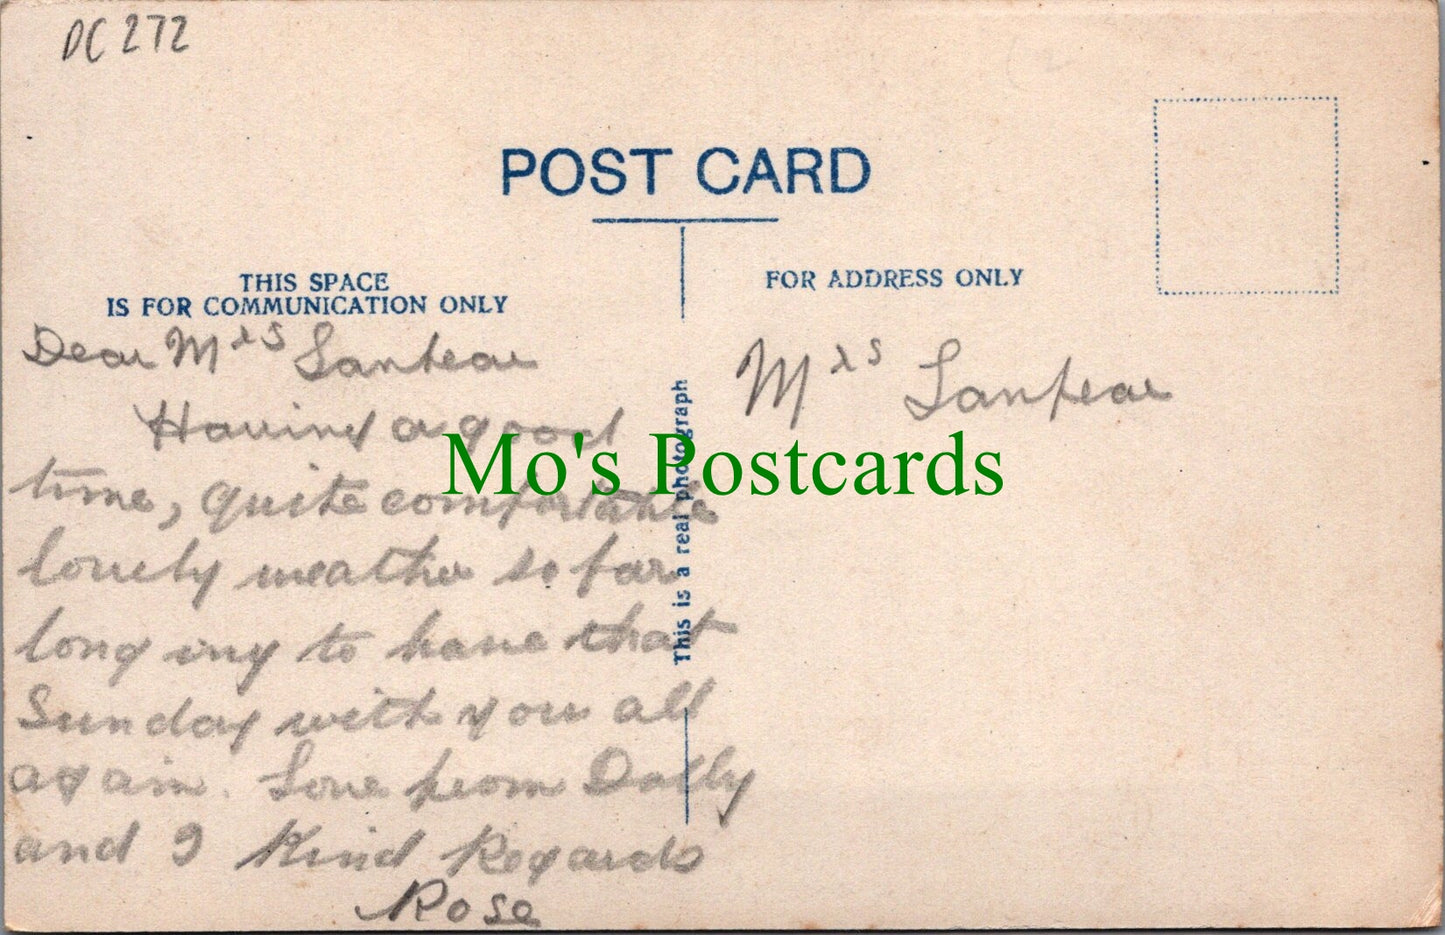 DC 272
POST CARD
THIS SPACE
IS FOR COMMUNICATION ONLY
FOR ADDRESS ONLY
This is a real photograph
Dear Mrs
Having a good
time, quite comfortable
lovely weather so far
longing to have that
Sunday with you all
again. Love from Dolly
and I Kind Regards
Rose
Mrs
Mo's Postcards